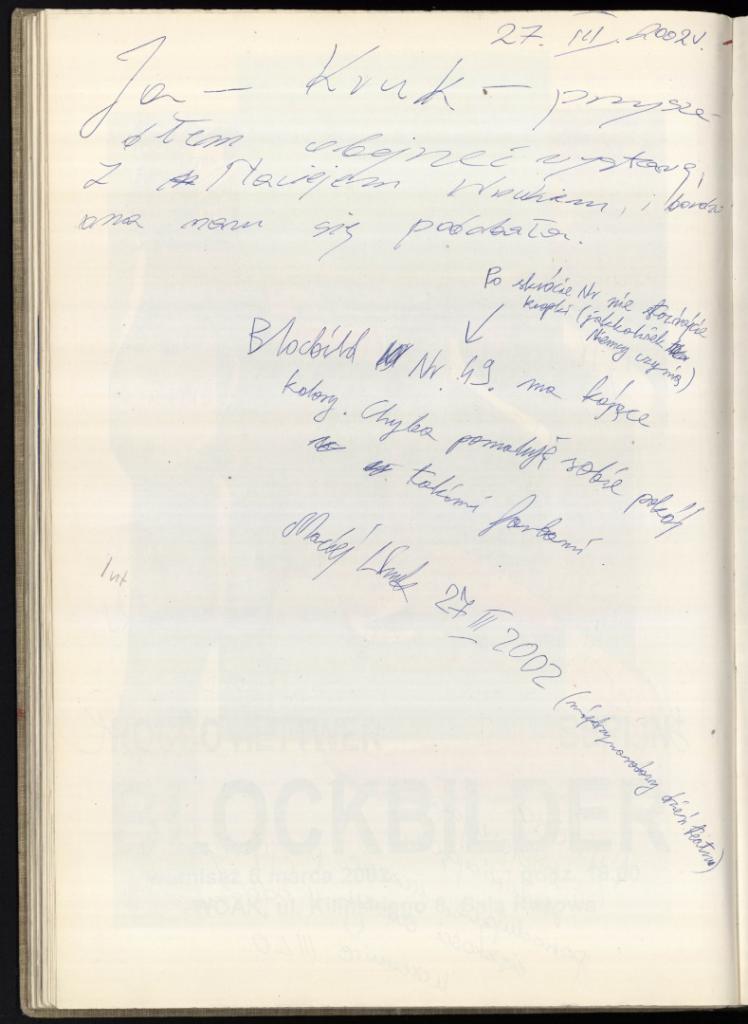 27. III. 2002r.
Ja – Kruk – przysze
dłem obejrzeć wystawę,
z Maciejem Wnukiem, i bardzo
ona nam się podobała.
Po skrócie Nr nie stawiajcie
kropki (jakkolwiek
Niemcy czynią)
Blocbild Nr. 49. ma kojące
kolory. Chyba pomaluję sobie pokój
takimi farbami.
Maciej Wnuk 27 III 2002
(międzynarodowy dzień teatru)
BLOCKBILDER
wernisaż 8 marca 2002 godz. 18.00
WOAK, ul. Kilińskiego 8, Sala Kawowa